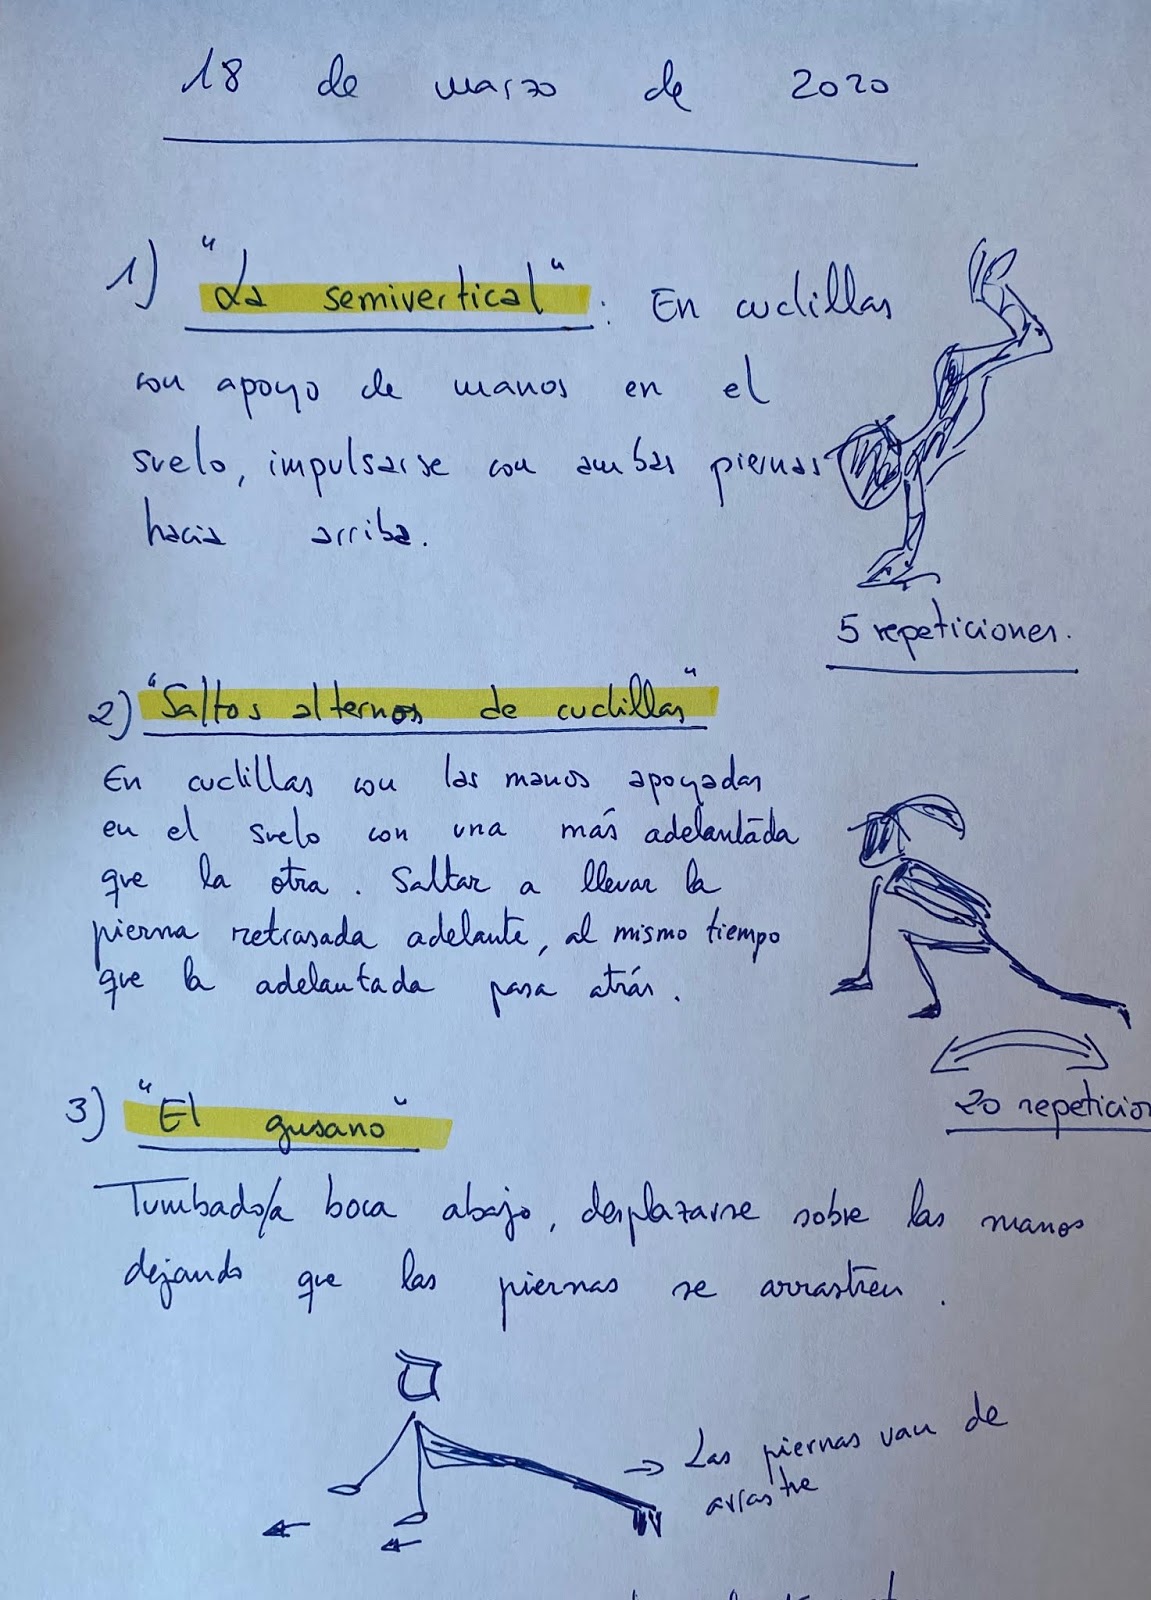 18 de marzo de 2020
1) "La semivertical": En cuclillas
con apoyo de manos en el
suelo, impulsarse con ambas piernas
hacia arriba.
5 repeticiones.
2) "Saltos alternos de cuclillas"
En cuclillas con las manos apoyadas
en el suelo con una más adelantada
que la otra. Saltar a llevar la
pierna retrasada adelante, al mismo tiempo
que la adelantada pasa atrás.
20 repeticion
3) "El gusano"
Tumbado/a boca abajo, desplazarse sobre las manos
dejando que las piernas se arrastren.
→ Las piernas van de
arrastre